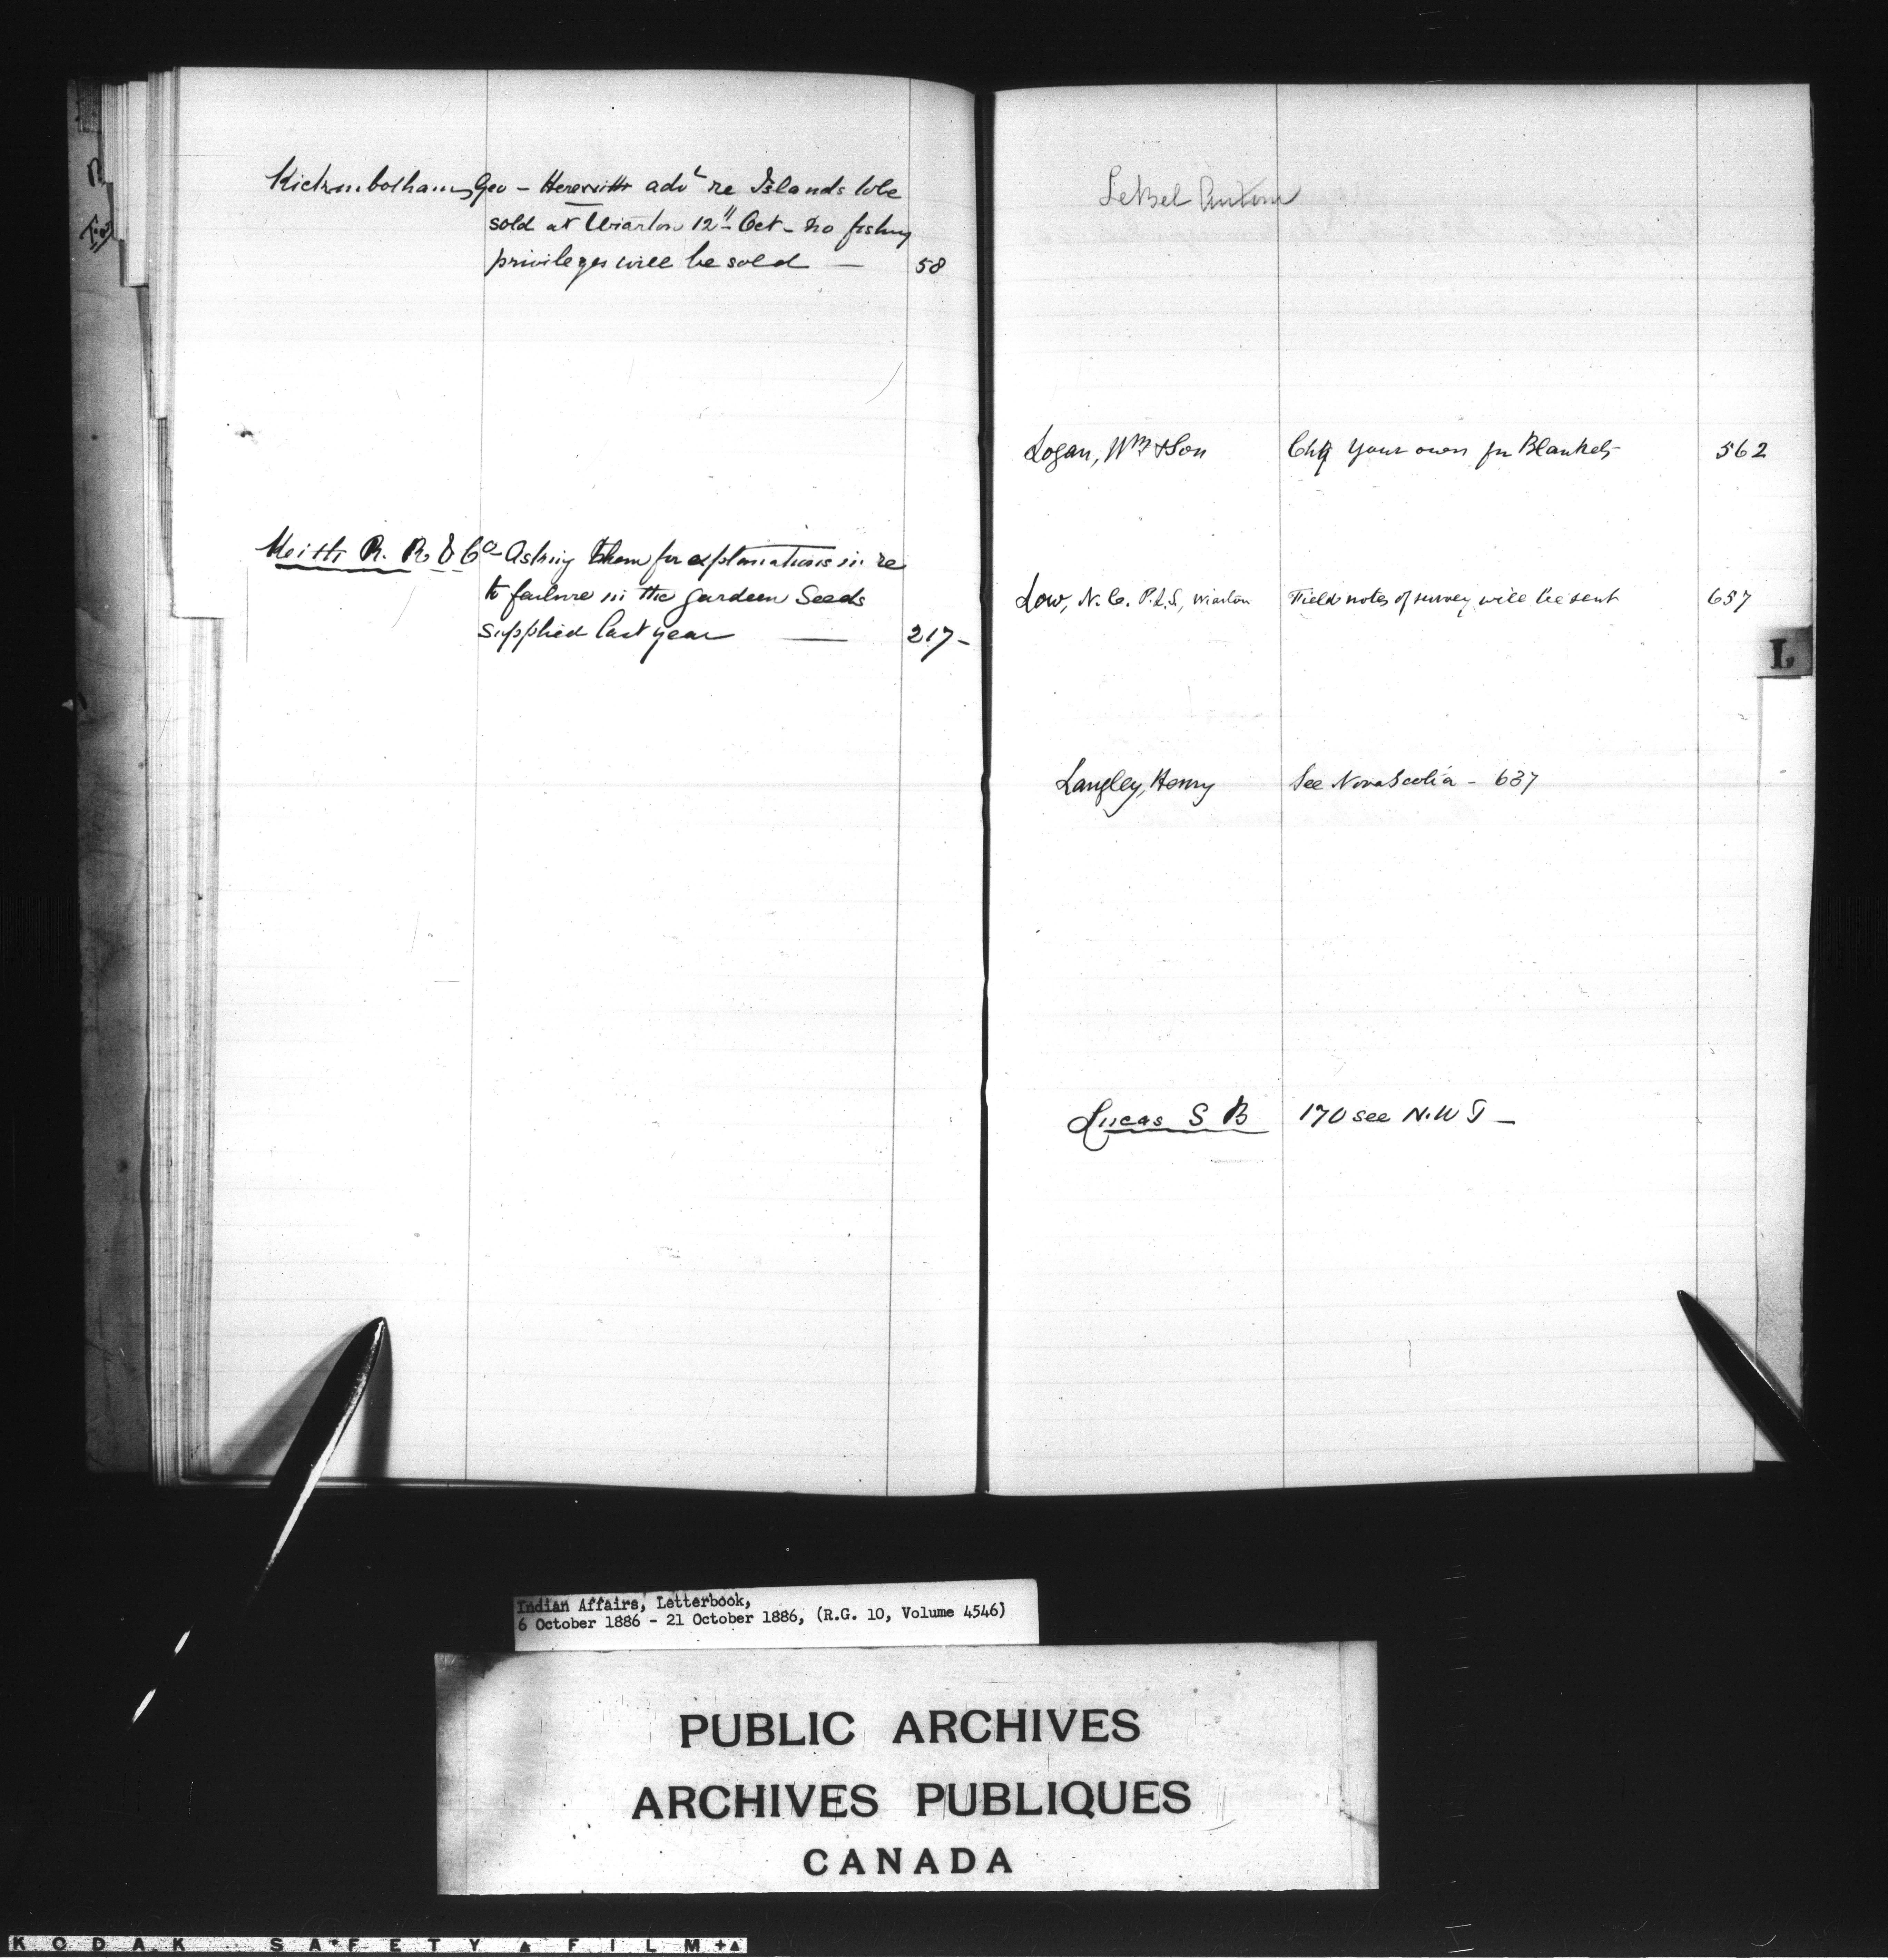 Kickimbotham, Geo – Herewith advt re Islands to be
sold at Wiarton 12" Oct – no fishing
privileges will be sold — 58
Keith R. R. & Co – Asking them for explanations in re
to failure in the garden Seeds
supplied last year — 217 –
LeBel Antoine
Logan, Wm & Son Chq your own for Blankets 562
Low, N. C. P.L.S, Wiarton Field notes of survey will be sent 657
L
Langley, Henry See Nova Scotia – 637
Lucas S B 170 see N.W T –
Indian Affairs, Letterbook,
6 October 1886 - 21 October 1886, (R.G. 10, Volume 4546)
PUBLIC ARCHIVES
ARCHIVES PUBLIQUES
CANADA
KODAK SAFETY FILM